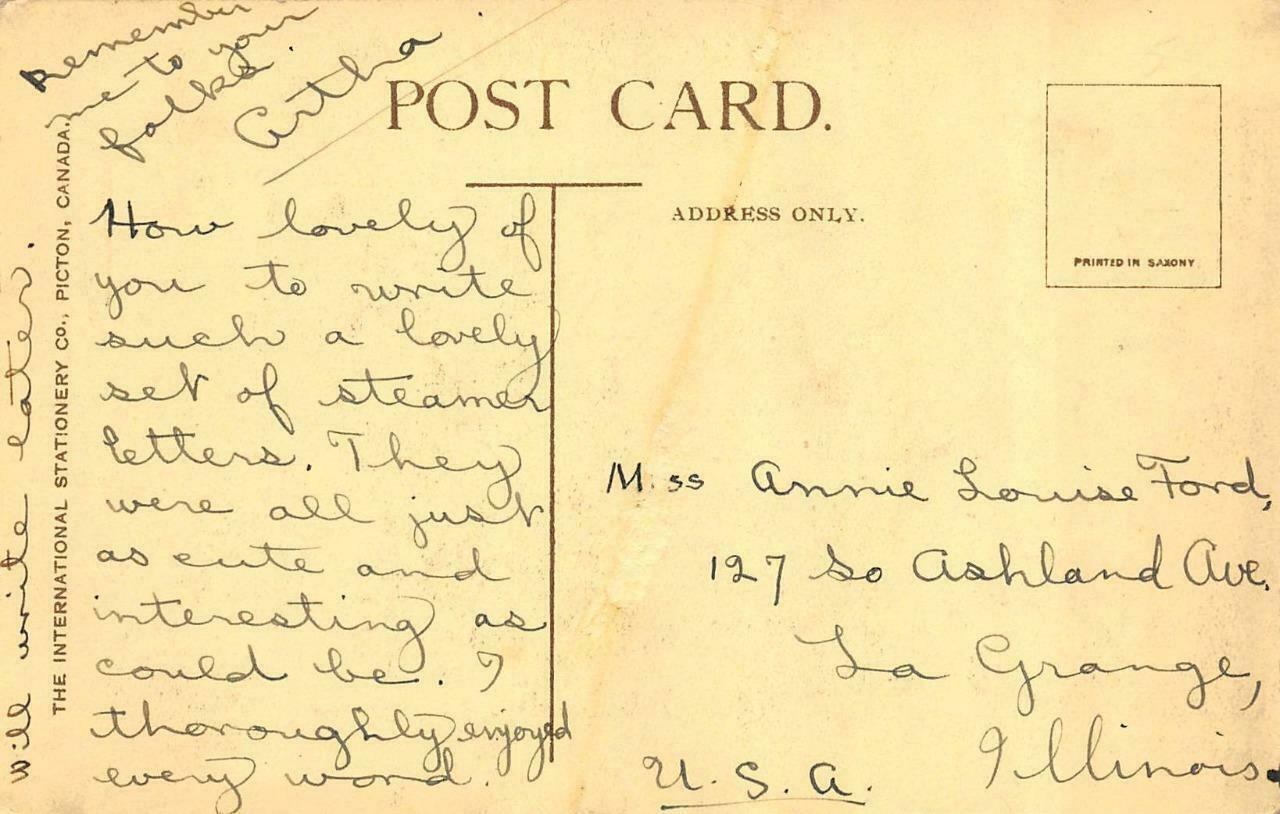 POST CARD.
ADDRESS ONLY.
PRINTED IN SAXONY
THE INTERNATIONAL STATIONERY CO., PICTON, CANADA.
How lovely of
you to write
such a lovely
set of steamer
letters. They
were all just
as cute and
interesting as
could be. I
thoroughly enjoyed
every word.
will write later.
Remember
me to your
folks.
Artha
Miss Annie Louise Ford,
127 So Ashland Ave.
La Grange,
Illinois.
U. S. A.